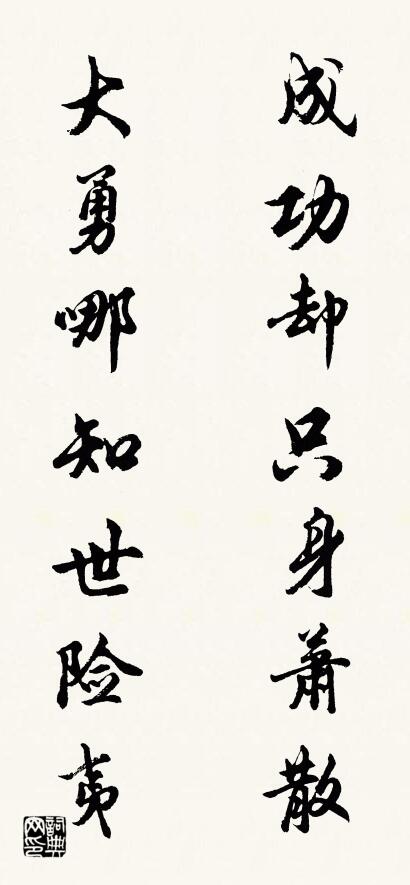 成功却只身萧散
大勇哪知世险夷
词典网印